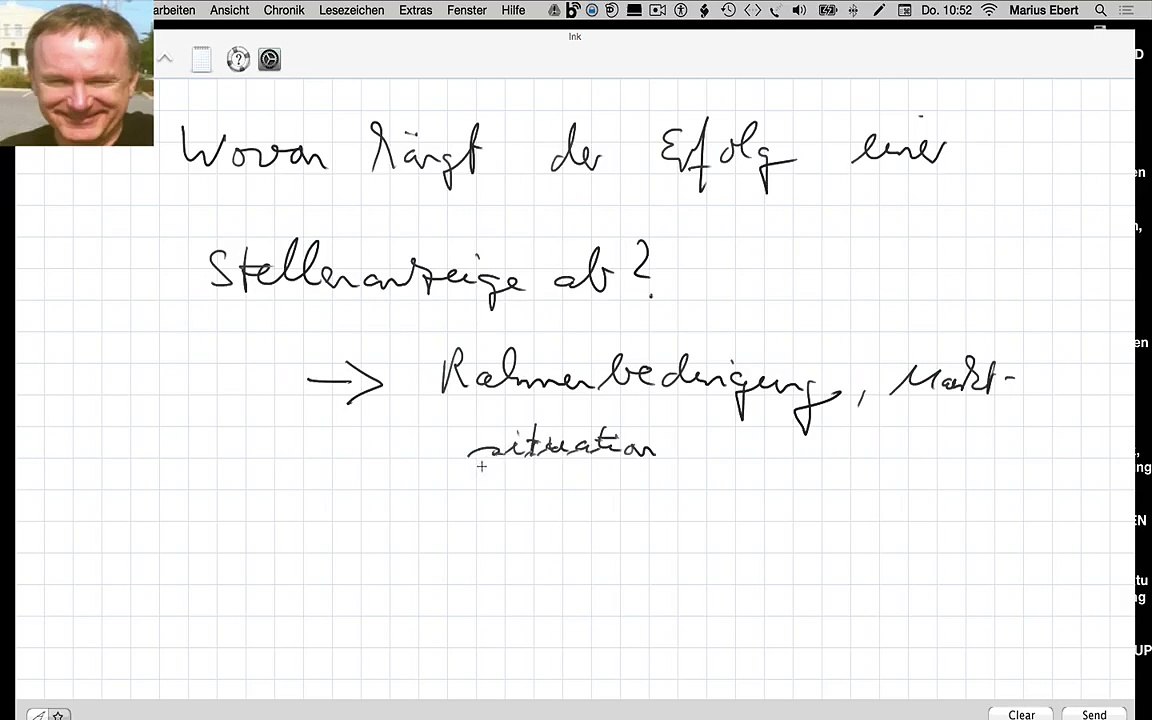 arbeiten Ansicht Chronik Lesezeichen Extras Fenster Hilfe Do. 10:52 Marius Ebert
Ink
D
Wovon hängt der Erfolg einer
en
n,
Stellenanzeige ab?
en
→ Rahmenbedingung, Markt-
situation
ng
EN
tu
ng
UP
Clear Send